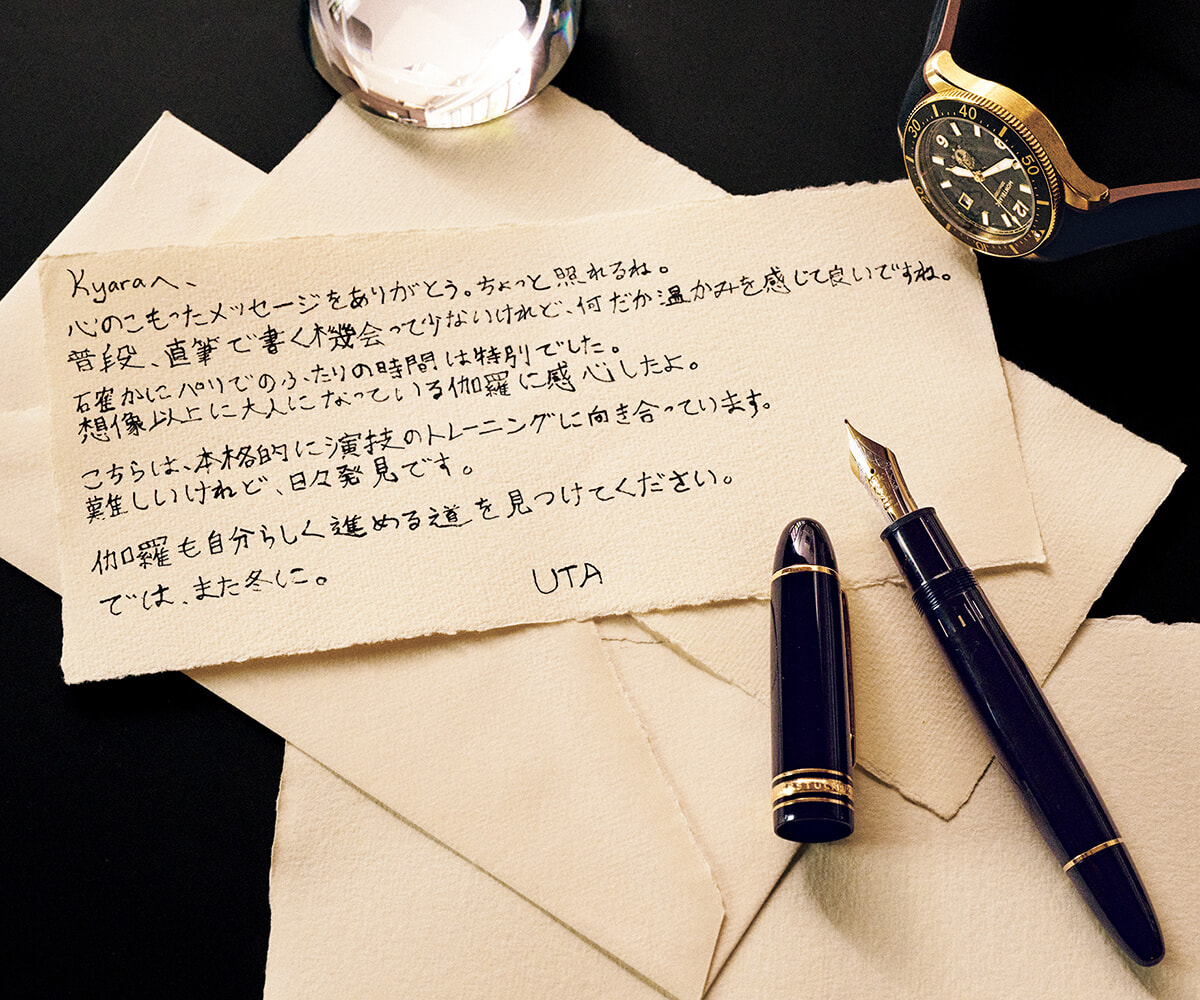 Kyaraへ、
心のこもったメッセージをありがとう。ちょっと照れるね。
普段、直筆で書く機会って少ないけれど、何だか温かみを感じて良いですね。
確かにパリでのふたりの時間は特別でした。
想像以上に大人になっている伽羅に感心したよ。
こちらは、本格的に演技のトレーニングに向き合っています。
難しいけれど、日々発見です。
伽羅も自分らしく進める道を見つけてください。
では、また冬に。
UTA
30
40
50
10
9
12
MONTBLANC